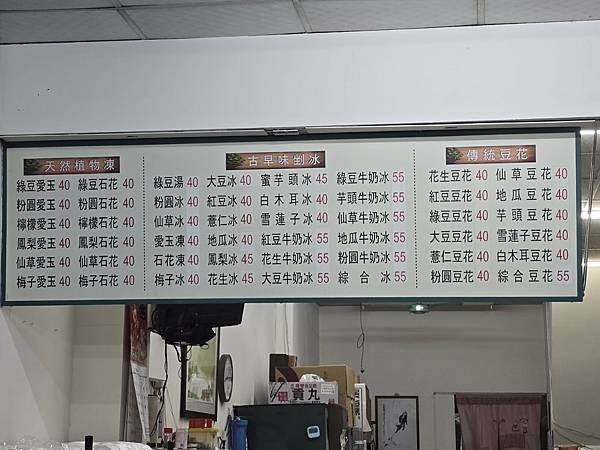 天然植物凍
綠豆愛玉 40 綠豆石花 40
粉圓愛玉 40 粉圓石花 40
檸檬愛玉 40 檸檬石花 40
鳳梨愛玉 40 鳳梨石花 40
仙草愛玉 40 仙草石花 40
梅子愛玉 40 梅子石花 40
古早味剉冰
綠豆湯 40 大豆冰 40 蜜芋頭冰 45 綠豆牛奶冰 55
粉圓冰 40 紅豆冰 40 白木耳冰 40 芋頭牛奶冰 55
仙草冰 40 薏仁冰 40 雪蓮子冰 40 仙草牛奶冰 55
愛玉凍 40 地瓜冰 40 紅豆牛奶冰 55 地瓜牛奶冰 55
石花凍 40 鳳梨冰 45 花生牛奶冰 55 粉圓牛奶冰 55
梅子冰 40 花生冰 45 大豆牛奶冰 55 綜合冰 55
傳統豆花
花生豆花 40 仙草豆花 40
紅豆豆花 40 地瓜豆花 40
綠豆豆花 40 芋頭豆花 40
大豆豆花 40 雪蓮子豆花 40
薏仁豆花 40 白木耳豆花 40
粉圓豆花 40 綜合豆花 55
貢丸